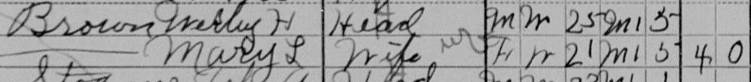 Brown Wesley H Head M W 25 M 1 5
Mary L Wife F W 21 M 1 5 4 0